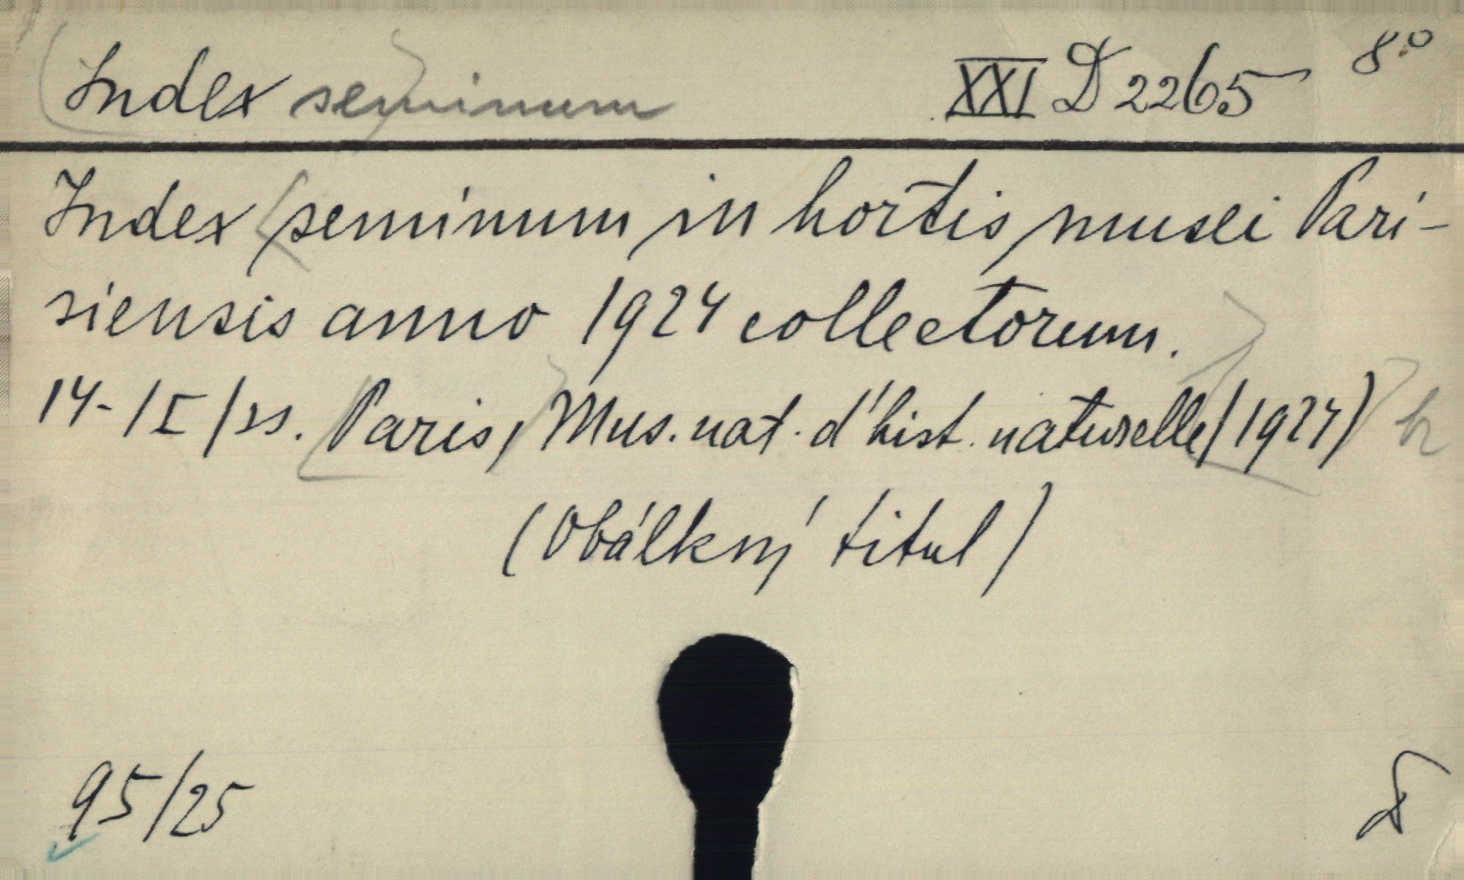 Index seminum XXI D 2265 8°
Index seminum in hortis musei Pari-
siensis anno 1924 collectorum.
14-/I/ss. Paris, Mus. nat. d'hist. naturelle (1924) br
(Obálkný titul)
95/25